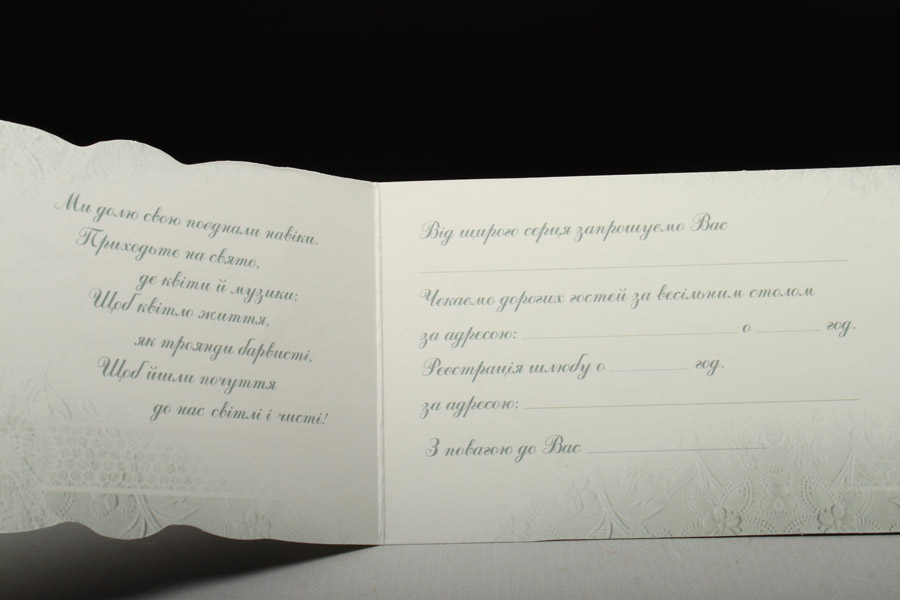 Ми долю свою поєднали навіки.
Приходьте на свято,
де квіти й музики;
Щоб квітло життя,
як троянди барвисті,
Щоб йшли почуття
до нас світлі і чисті!
Від щирого серця запрошуємо Вас
Чекаємо дорогих гостей за весільним столом
за адресою: о год.
Реєстрація шлюбу о год.
за адресою:
З повагою до Вас